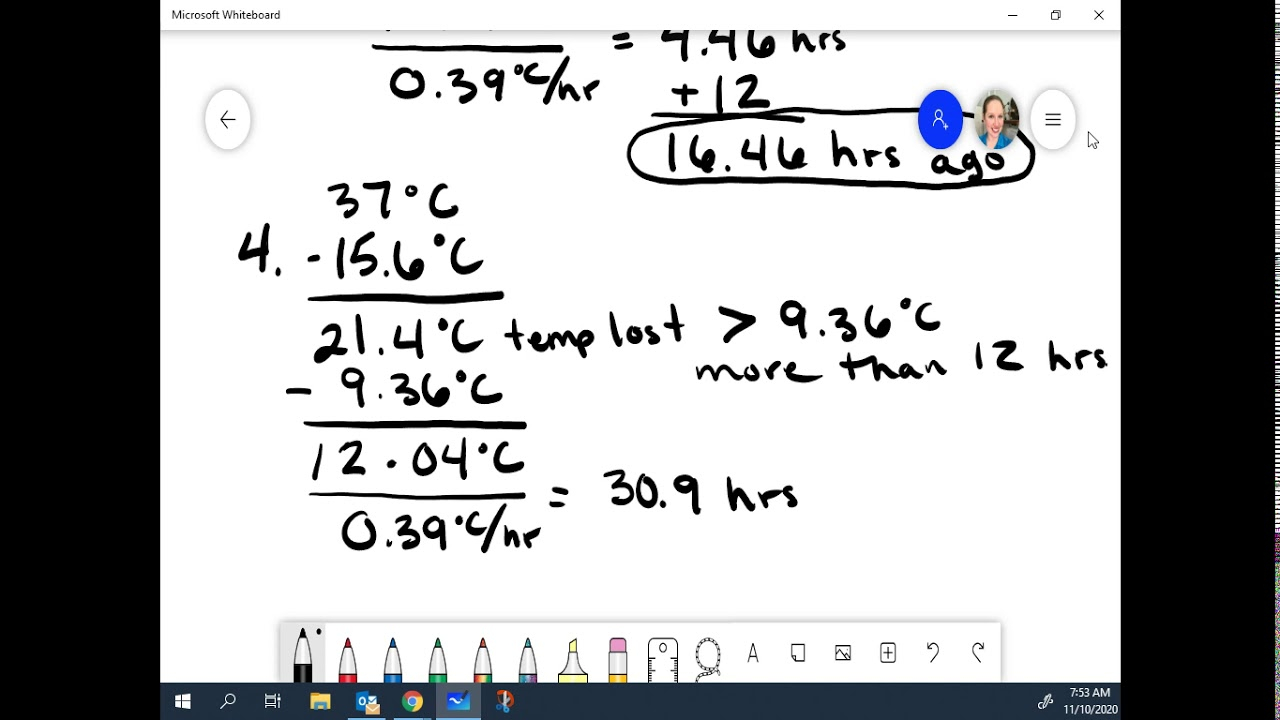 Microsoft Whiteboard
= 4.46 hrs
0.39°C/hr + 12
16.46 hrs ago
37°C
4. - 15.6°C
21.4°C temp lost > 9.36°C
more than 12 hrs
- 9.36°C
12.04°C
= 30.9 hrs
0.39°C/hr
7:53 AM
11/10/2020